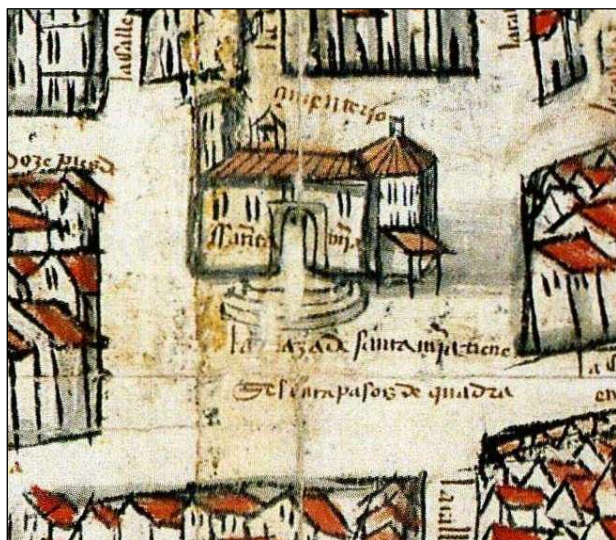 la Calle
çimenterio
doze pies d
Santa mª
la plaza de santa mª tiene
Sesenta pasos de quadra
la call